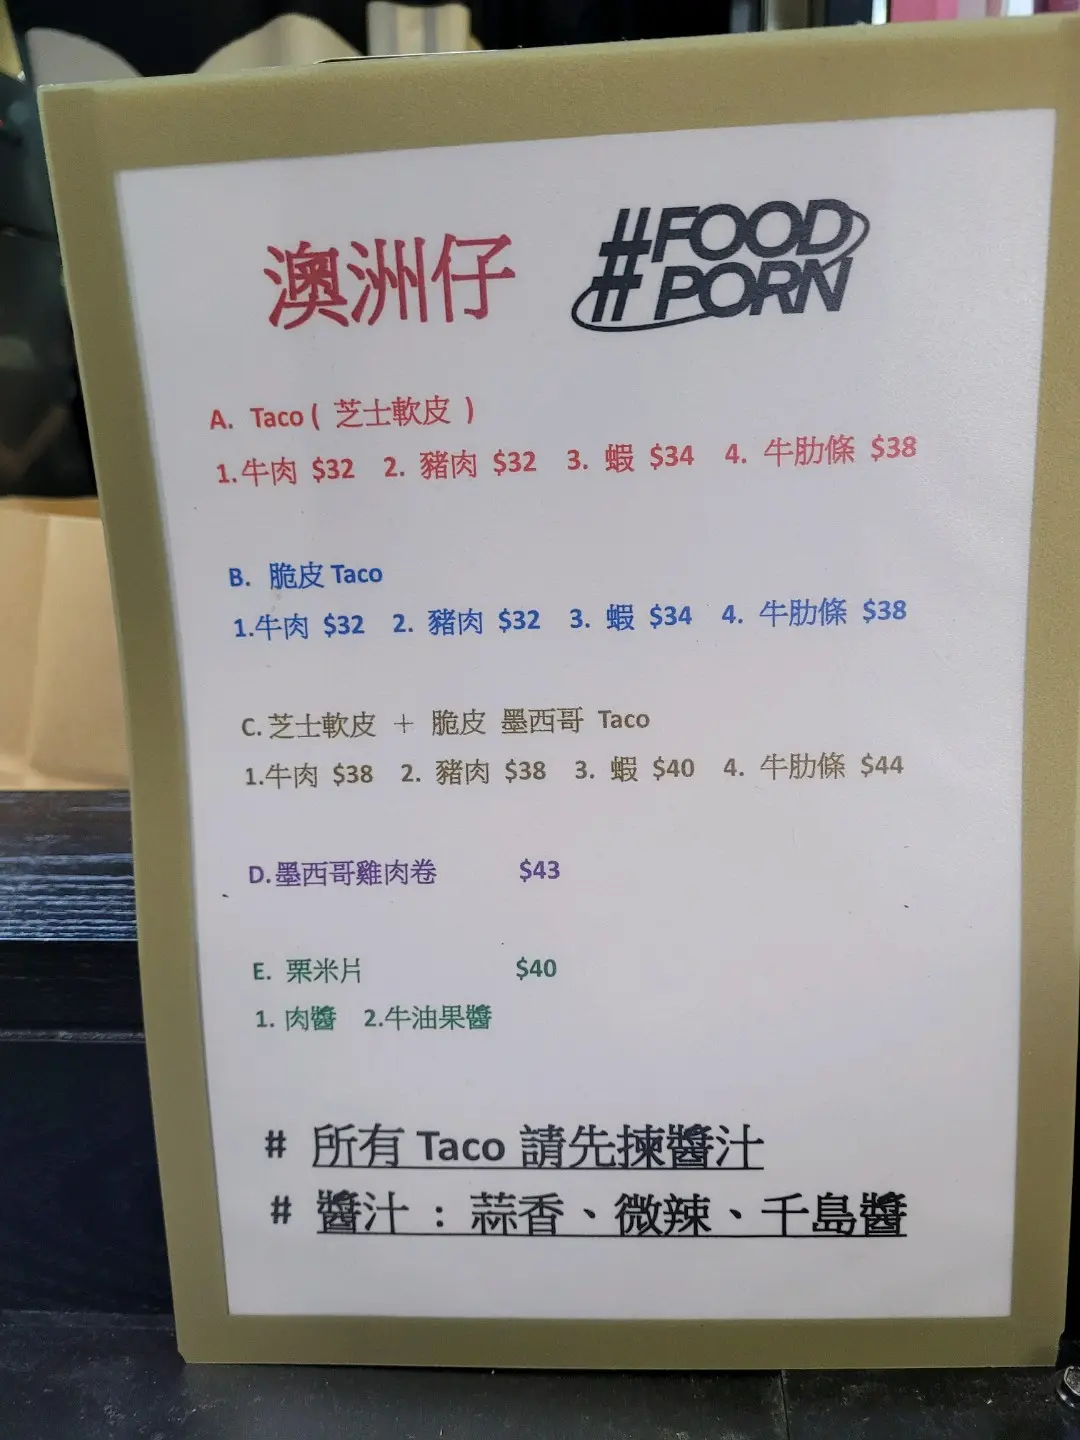 澳洲仔
#FOOD
#PORN
A. Taco ( 芝士軟皮 )
1.牛肉 $32 2. 豬肉 $32 3. 蝦 $34 4. 牛肋條 $38
B. 脆皮 Taco
1.牛肉 $32 2. 豬肉 $32 3. 蝦 $34 4. 牛肋條 $38
C. 芝士軟皮 + 脆皮 墨西哥 Taco
1.牛肉 $38 2. 豬肉 $38 3. 蝦 $40 4. 牛肋條 $44
D.墨西哥雞肉卷 $43
E. 栗米片 $40
1. 肉醬 2.牛油果醬
# 所有 Taco 請先揀醬汁
# 醬汁 : 蒜香、微辣、千島醬